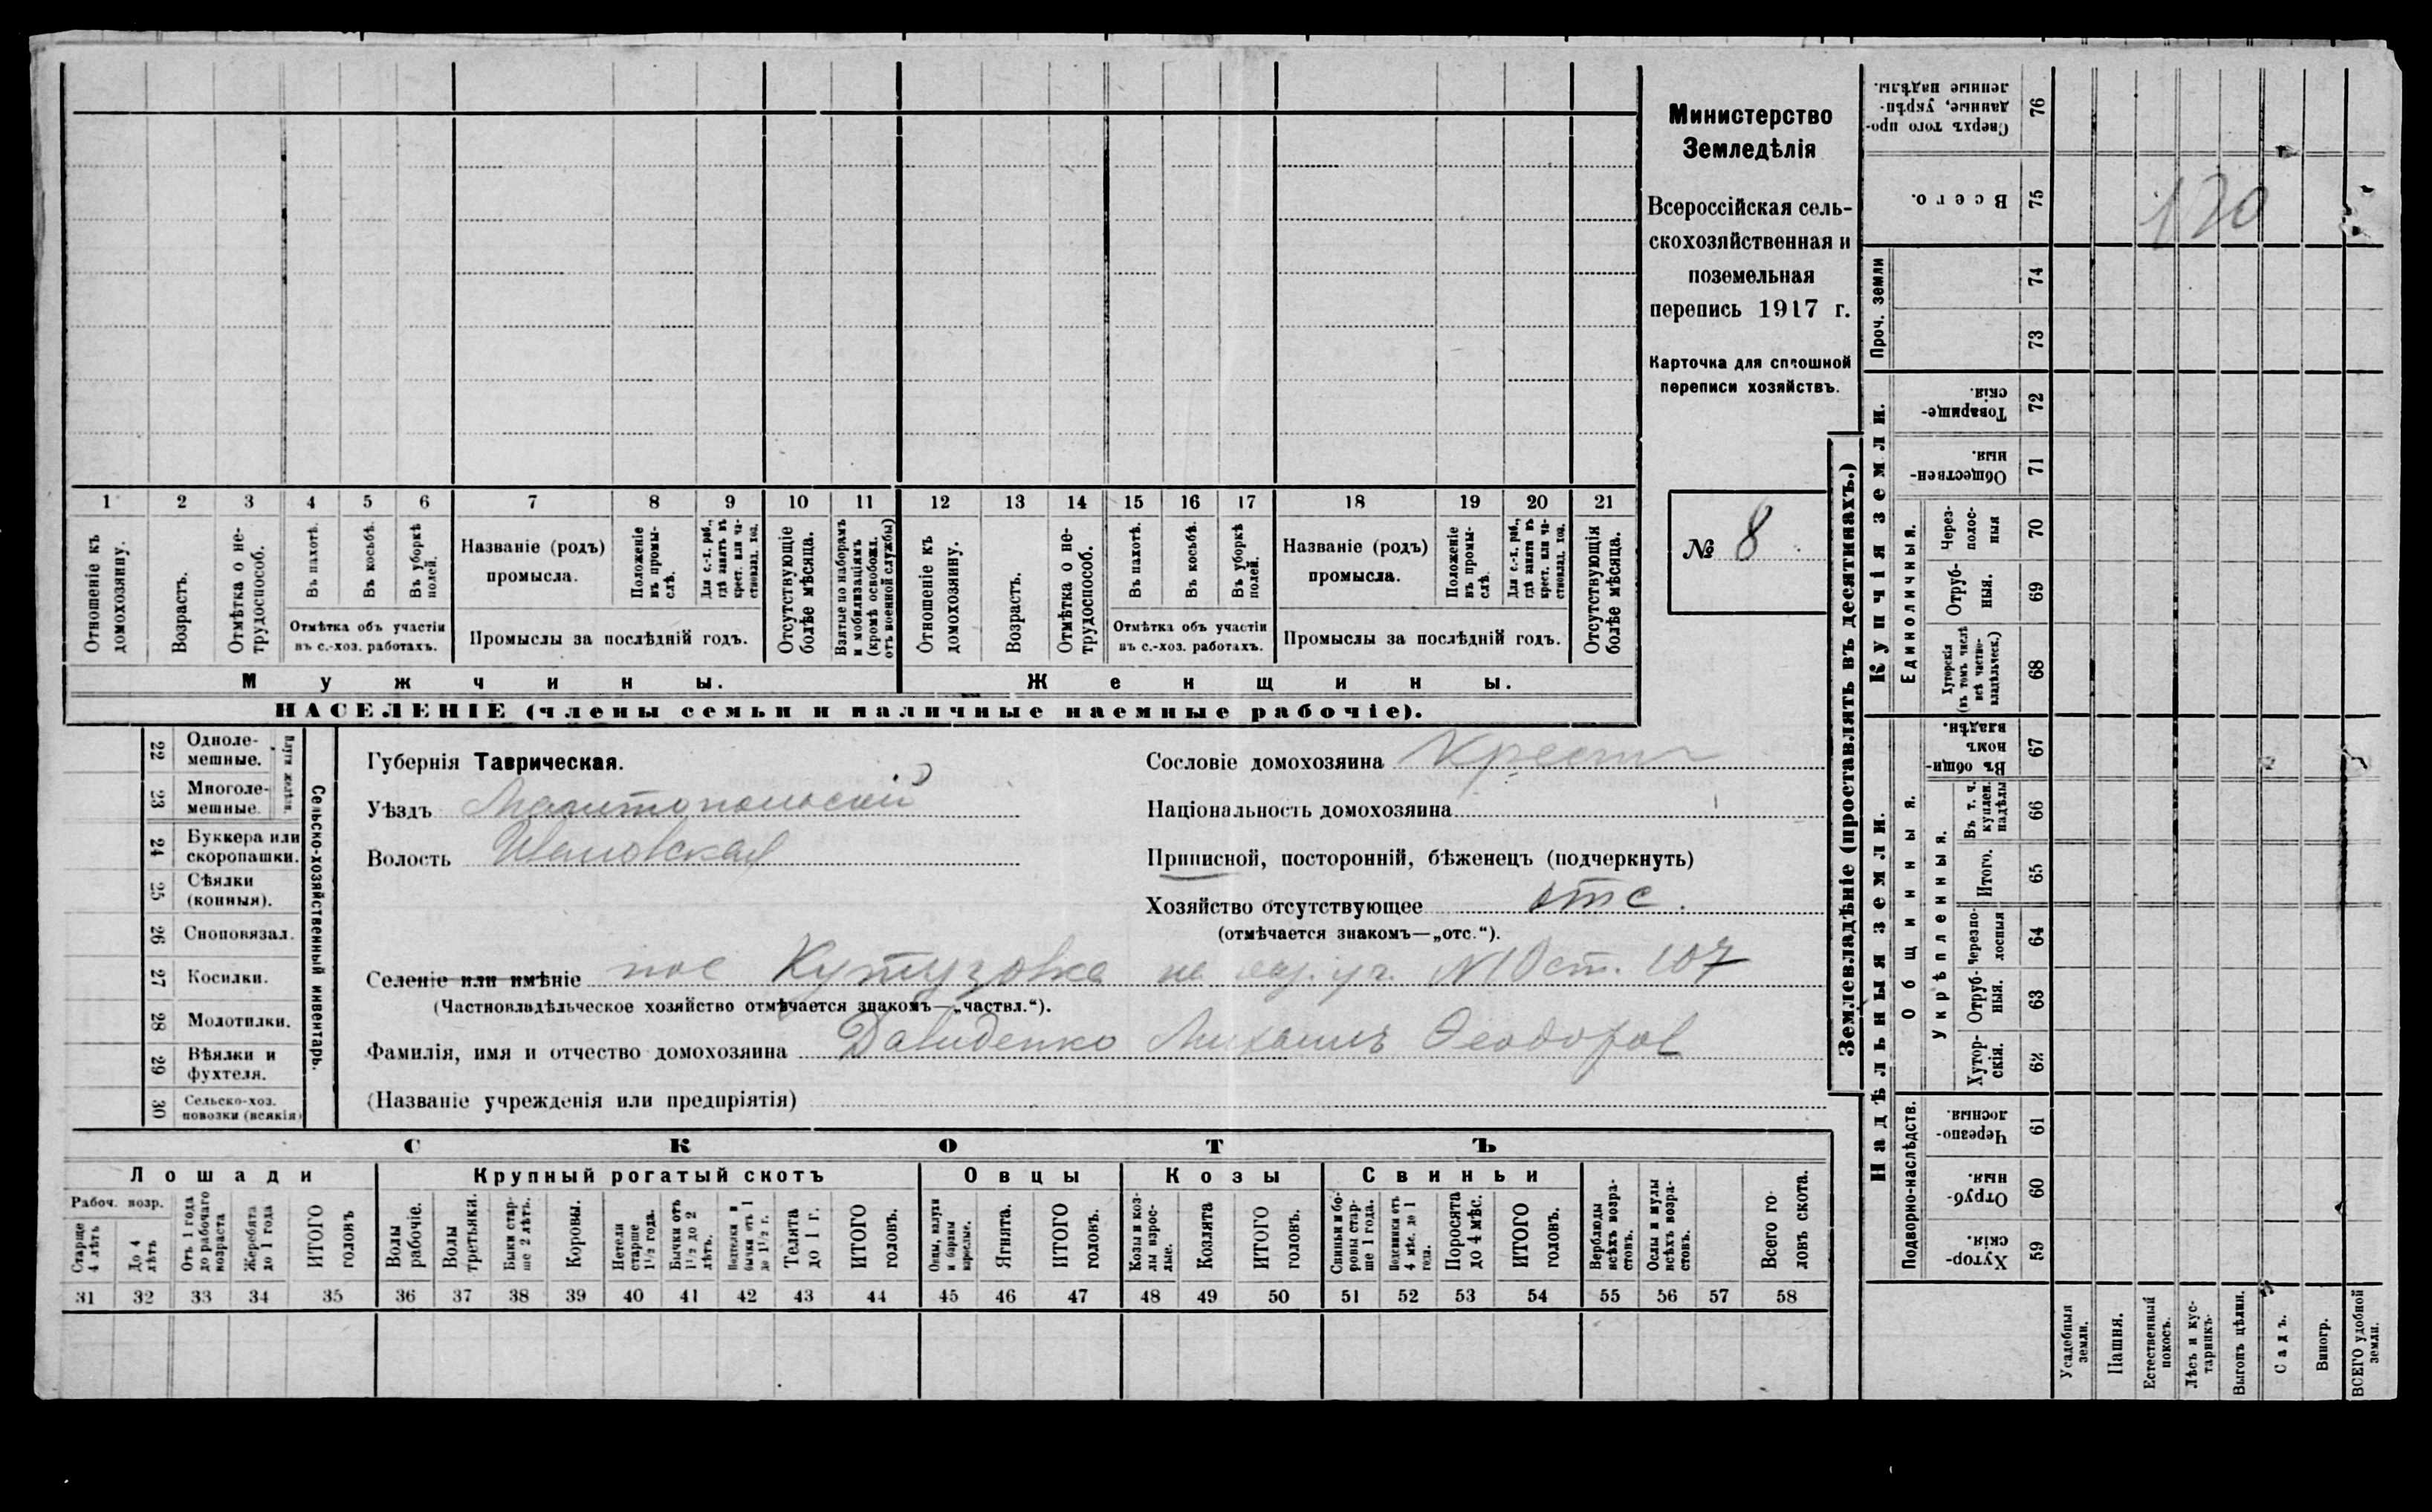 Министерство
Земледѣлія
Всероссійская сель-
скохозяйственная и
поземельная
перепись 1917 г.
Карточка для сплошной
переписи хозяйствъ.
№ 8
1 2 3 4 5 6 7 8 9 10 11 12 13 14 15 16 17 18 19 20 21
Отношеніе къ домохозяину.
Возрастъ.
Отмѣтка о не-трудоспособ.
Въ пахотѣ.
Въ косьбѣ.
Въ уборкѣ полей.
Отмѣтка объ участіи
въ с.-хоз. работахъ.
Названіе (родъ)
промысла.
Положеніе въ промы-слѣ.
Для с.-х. раб., гдѣ занятъ въ крест. или ча-стновлад. хоз.
Промыслы за послѣдній годъ.
Отсутствующіе болѣе мѣсяца.
Взятые по наборамъ и мобилизаціямъ (кромѣ освобожд. отъ военной службы)
Отношеніе къ домохозяину.
Возрастъ.
Отмѣтка о не-трудоспособ.
Въ пахотѣ.
Въ косьбѣ.
Въ уборкѣ полей.
Отмѣтка объ участіи
въ с.-хоз. работахъ.
Названіе (родъ)
промысла.
Положеніе въ промы-слѣ.
Для с.-х. раб., гдѣ занята въ крест. или ча-стновлад. хоз.
Промыслы за послѣдній годъ.
Отсутствующія болѣе мѣсяца.
Мужчины.
Женщины.
НАСЕЛЕНІЕ (члены семьи и наличные наемные рабочіе).
22 Одноле-мешные.
23 Многоле-мешные.
24 Буккера или скоропашки.
25 Сѣялки (конныя).
26 Сноповязал.
27 Косилки.
28 Молотилки.
29 Вѣялки и фухтеля.
30 Сельско-хоз. повозки (всякія)
Сельско-хозяйственный инвентарь.
Губернія Таврическая.
Уѣздъ Мелитопольскій
Волость Ивановская
Сословіе домохозяина Крест
Національность домохозяина
Приписной, посторонній, бѣженецъ (подчеркнуть)
Хозяйство отсутствующее отс.
(отмѣчается знакомъ—„отс.“).
Селеніе или имѣніе пос Кутузовка на уч. № ст. 107
(Частновладѣльческое хозяйство отмѣчается знакомъ—„частвл.“).
Фамилія, имя и отчество домохозяина Давиденко Михаилъ Феодоров
(Названіе учрежденія или предпріятія)
СКОТЪ
Лошади
Крупный рогатый скотъ
Овцы
Козы
Свиньи
Рабоч. возр.
Старше 4 лѣтъ
До 4 лѣтъ
Отъ 1 года до рабочаго возраста
Жеребята до 1 года
ИТОГО головъ
Волы рабочіе.
Волы третьяки.
Быки стар-ше 2 лѣтъ.
Коровы.
Нетели старше 1½ года.
Бычки отъ 1½ до 2 лѣтъ.
Подтелки и бычки отъ 1 до 1½ г.
Телята до 1 г.
ИТОГО головъ.
Овцы, валухи и бараны взрослые.
Ягнята.
ИТОГО головъ.
Козы и коз-лы взрос-лые.
Козлята
ИТОГО головъ.
Свиньи и бо-ровы стар-ше 1 года.
Подсвинки отъ 4 мѣс. до 1 года.
Поросята до 4 мѣс.
ИТОГО головъ.
Верблюды всѣхъ возра-стовъ.
Ослы и мулы всѣхъ возра-стовъ.
Всего го-ловъ скота.
31 32 33 34 35 36 37 38 39 40 41 42 43 44 45 46 47 48 49 50 51 52 53 54 55 56 57 58
Землевладѣніе (проставлять въ десятинахъ.)
Надѣльныя земли.
Купчія земли.
Проч. земли
Сверхъ того про-данные, укрѣп-ленные надѣлы. 76
Всего. 75
120
74
73
Товарище-скія 72
Обществен-ныя. 71
Единоличныя.
Через-полос-ныя 70
Отруб-ныя. 69
Хуторскія (въ томъ числѣ всѣ частно-владѣльческ.) 68
Общинныя.
Въ общи-номъ владѣн. 67
Укрѣпленныя.
Въ т. ч. куплен. надѣлы 66
Итого. 65
Черезпо-лосныя 64
Отруб-ныя. 63
Хутор-скія. 62
Подворно-наслѣдств.
Черезпо-лосныя. 61
Отруб-ныя. 60
Хутор-скія. 59
Усадебныя земли.
Пашня.
Естественный покосъ.
Лѣсъ и кус-тарникъ.
Выгонъ цѣлин.
Садъ.
Виногр.
ВСЕГО удобной земли.